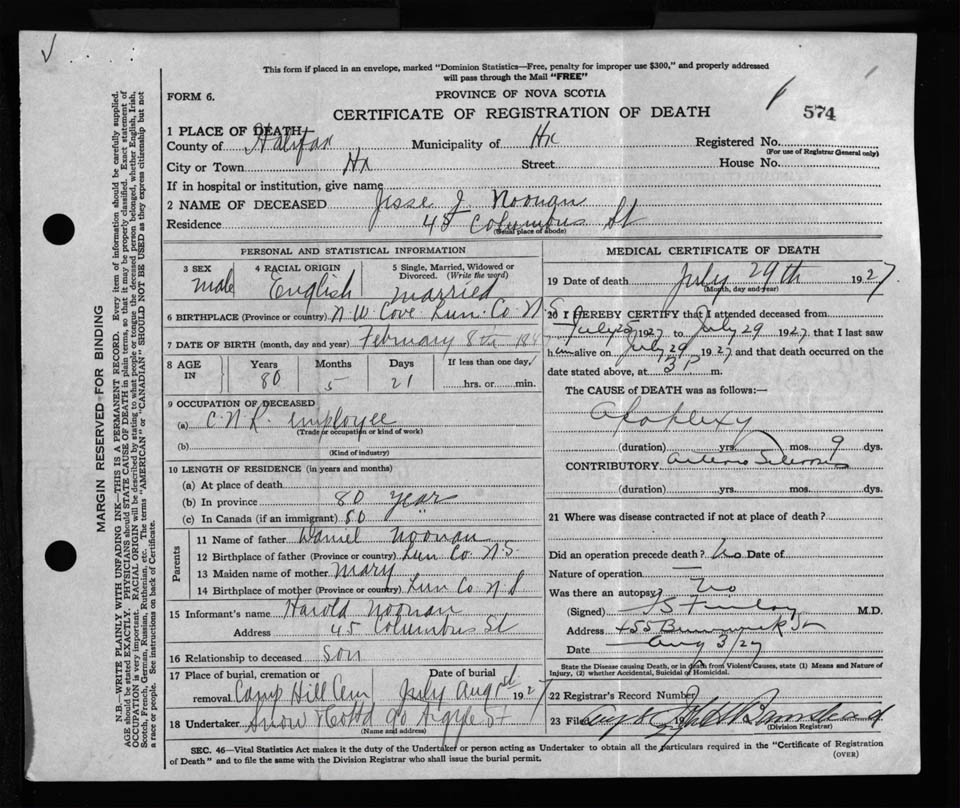 This form if placed in an envelope, marked "Dominion Statistics—Free, penalty for improper use $300," and properly addressed
will pass through the Mail "FREE"
FORM 6.
PROVINCE OF NOVA SCOTIA
CERTIFICATE OF REGISTRATION OF DEATH
574
1 PLACE OF DEATH
County of Halifax Municipality of Hx Registered No.
(For use of Registrar General only)
City or Town Hx Street House No.
If in hospital or institution, give name
2 NAME OF DECEASED Jesse J. Noonan
Residence 45 Columbus St
(Usual place of abode)
PERSONAL AND STATISTICAL INFORMATION
3 SEX male
4 RACIAL ORIGIN English
5 Single, Married, Widowed or Divorced. (Write the word) married
6 BIRTHPLACE (Province or country) N.W. Cove Lun. Co. N.S
7 DATE OF BIRTH (month, day and year) February 8th 184
8 AGE IN Years 80 Months 5 Days 21 If less than one day, hrs. or min.
9 OCCUPATION OF DECEASED
(a) C.N.R. employee
(Trade or occupation or kind of work)
(b)
(Kind of industry)
10 LENGTH OF RESIDENCE (in years and months)
(a) At place of death
(b) In province 80 year
(c) In Canada (if an immigrant) 80 "
Parents
11 Name of father Daniel Noonan
12 Birthplace of father (Province or country) Lun Co. N.S.
13 Maiden name of mother Mary
14 Birthplace of mother (Province or country) Lun Co. N.S
15 Informant's name Harold Noonan
Address 45 Columbus St
16 Relationship to deceased Son
17 Place of burial, cremation or removal Camp Hill Cem Date of burial July Aug 1st 1927
18 Undertaker Snow & Co Ltd 90 Argyle St
(Name and address)
MEDICAL CERTIFICATE OF DEATH
19 Date of death July 29th 1927
(Month, day and year)
20 I HEREBY CERTIFY that I attended deceased from
July 25 1927 to July 29 1927, that I last saw
him alive on July 29 1927, and that death occurred on the
date stated above, at 3 P m.
The CAUSE of DEATH was as follows:—
Apoplexy
(duration) yrs. mos. 9 dys.
CONTRIBUTORY Arterio Sclerosis
(duration) yrs. mos. dys.
21 Where was disease contracted if not at place of death?
Did an operation precede death? No Date of
Nature of operation —
Was there an autopsy? No
(Signed) Finlay M.D.
Address 455 Brunswick St
Date Aug 3/27
State the Disease causing Death, or in death from Violent Causes, state (1) Means and Nature of
Injury, (2) whether Accidental, Suicidal or Homicidal.
22 Registrar's Record Number
23 Filed Aug 192
(Division Registrar)
SEC. 46—Vital Statistics Act makes it the duty of the Undertaker or person acting as Undertaker to obtain all the particulars required in the "Certificate of Registration
of Death" and to file the same with the Division Registrar who shall issue the burial permit.
(OVER)
MARGIN RESERVED FOR BINDING
N.B.—WRITE PLAINLY, WITH UNFADING INK—THIS IS A PERMANENT RECORD. Every item of information should be carefully supplied.
AGE should be stated EXACTLY. PHYSICIANS should STATE CAUSE OF DEATH in plain terms, so that it may be properly classified. Exact statement of
OCCUPATION is very important. RACIAL ORIGIN will be described by stating to what people or tongue the deceased person belonged, whether English, Irish,
Scotch, French, German, Russian, Ruthenian, etc. The terms "AMERICAN" or "CANADIAN" SHOULD NOT BE USED as they express citizenship but not
a race or people. See instructions on back of Certificate.